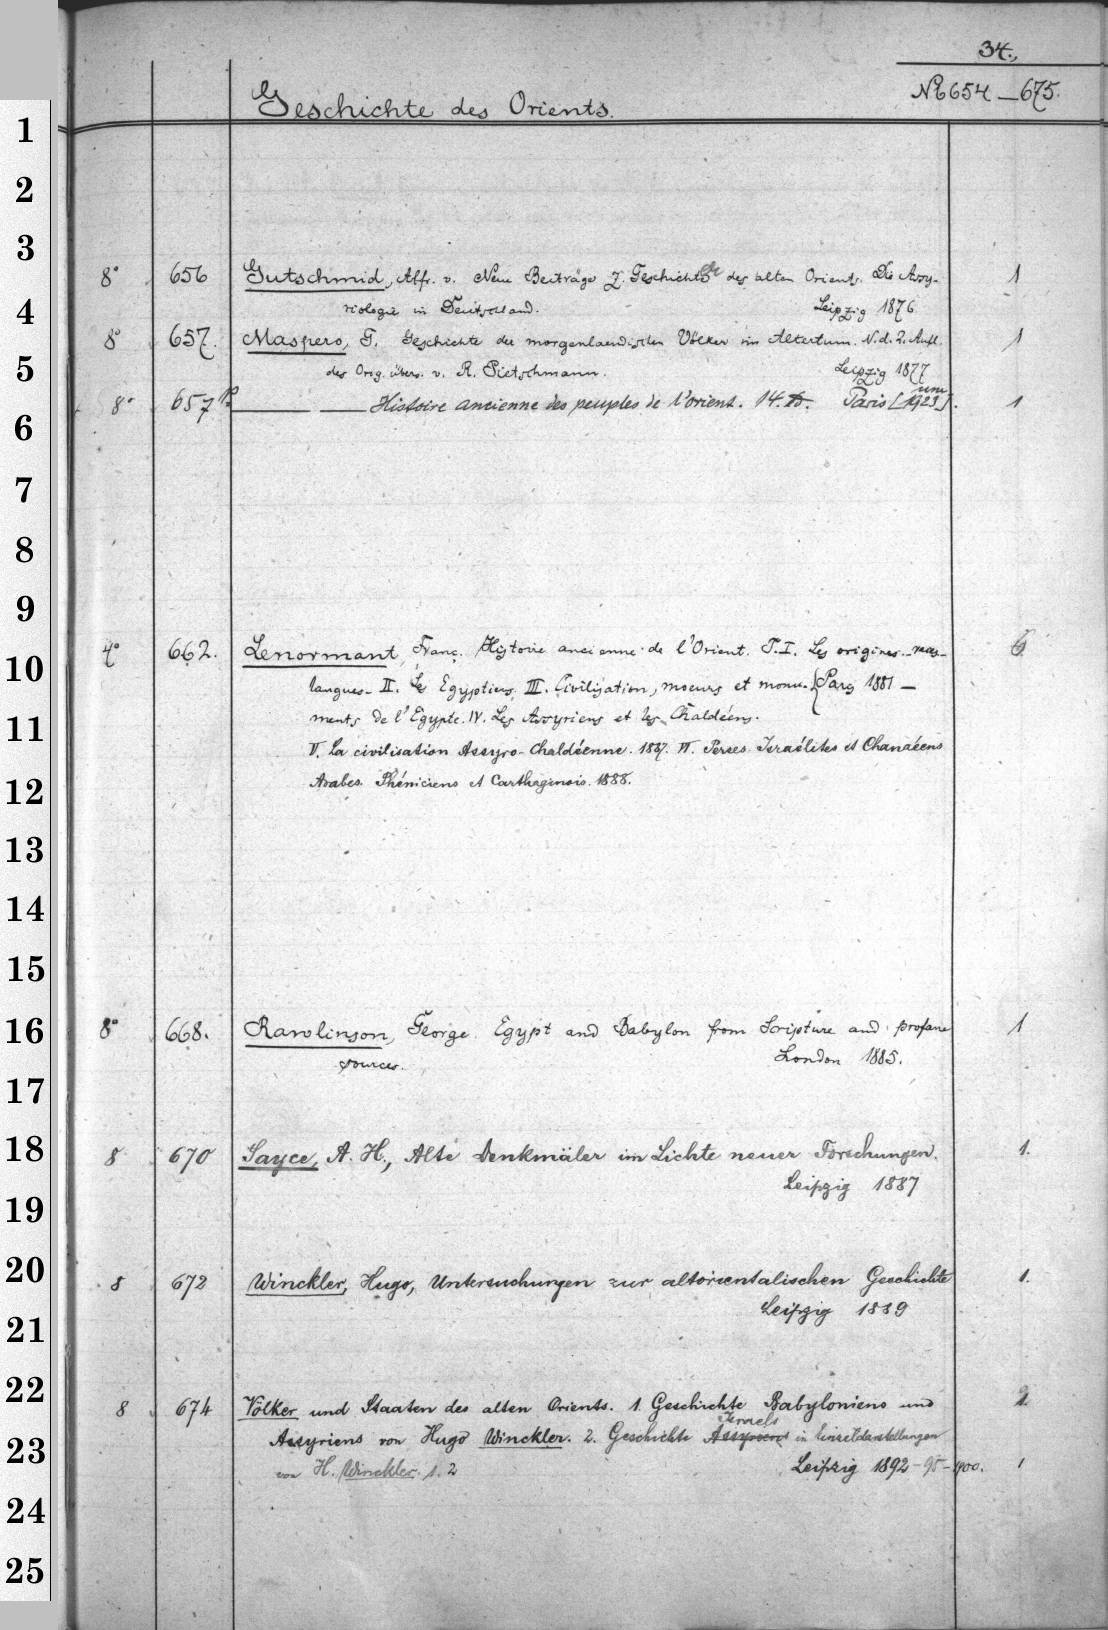 34.
Geschichte des Orients.
№ 654 – 675.
1
2
3
8° 656 Gutschmid, Alfr. v. Neue Beiträge z. Geschichte des alten Orients. Die Assy- 1
4
riologie in Deutschland. Leipzig 1876
8° 657. Maspero, G. Geschichte der morgenlaendischen Völker im Altertum. N. d. 2. Aufl. 1
5
des Orig. übers. v. R. Pietschmann. Leipzig 1877
8° 657 b ____ ____ Histoire ancienne des peuples de l'orient. 14. Paris [um 1923]. 1
6
7
8
9
4° 662. Lenormant, Franç. Histoire ancienne de l'Orient. T. I. Les origines. – races – 6
10
langues – II. Les Egyptiens III. Civilisation, moeurs et monu- } Paris 1881 –
11
ments de l'Egypte. IV. Les Assyriens et les Chaldéens.
V. La civilisation Assyro-Chaldéenne. 1887. VI. Perses Israélites et Chanaéens
12
Arabes. Phéniciens et Carthaginois. 1888.
13
14
15
16
8° 668. Rawlinson, George. Egypt and Babylon from Scripture and profane 1
sources. London 1885.
17
18
8 670 Sayce, A. H., Alte Denkmäler im Lichte neuer Forschungen. 1.
Leipzig 1887
19
20
8 672 Winckler, Hugo, Untersuchungen zur altorientalischen Geschichte 1.
Leipzig 1889
21
22
8 674 Völker und Staaten des alten Orients. 1. Geschichte Babyloniens und
Israels
Assyriens von Hugo Winckler. 2. Geschichte Assyriens in Einzeldarstellungen
23
von H. Winckler. 1. 2 Leipzig 1892 – 95 – 1900. 1
24
25